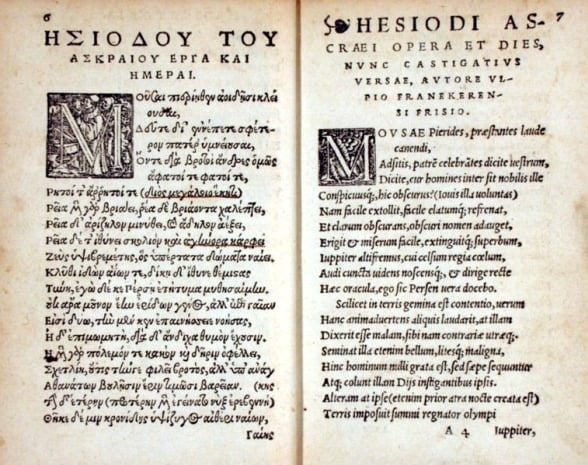 6
ΗΣΙΟΔΟΥ ΤΟΥ
ΑΣΚΡΑΙΟΥ ΕΡΓΑ ΚΑΙ
ΗΜΕΡΑΙ.
Μοῦσαι πιερίηθεν ἀοιδῇσι κλεί
ουσαι,
Δεῦτε δὴ ἐννέπετε σφέτε-
ρον πατέρ᾽ ὑμνείουσαι,
Ὅντε διὰ βροτοὶ ἄνδρες ὁμῶς
ἄφατοί τε φατοί τε,
Ρητοί τ᾽ ἄρρητοί τε διὸς μεγάλοιο ἕκητι,
Ρεῖα μὲν γὰρ βριάει, ῥέα δὲ βριάοντα χαλέπτει,
Ρεῖα δ᾽ ἀρίζηλον μινύθει, καὶ ἄδηλον ἀέξει,
Ρεῖα δέ τ᾽ ἰθύνει σκολιὸν καὶ ἀγήνορα κάρφει
Ζεὺς ὑψιβρεμέτης, ὃς ὑπέρτατα δώματα ναίει.
Κλῦθι ἰδὼν ἀΐων τε, δίκῃ δ᾽ ἴθυνε θέμιστας
Τύνη, ἐγὼ δέ κε Πέρσῃ ἐτήτυμα μυθησαίμην.
Οὐκ ἄρα μοῦνον ἔην ἐρίδων γένος, ἀλλ᾽ ἐπὶ γαῖαν
Εἰσὶ δύω, τὴν μέν κεν ἐπαινήσειε νοήσας,
Ἡ δ᾽ ἐπιμωμητὴ, διὰ δ᾽ ἄνδιχα θυμὸν ἔχουσιν.
Ἡ μὲν γὰρ πόλεμόν τε κακὸν καὶ δῆριν ὀφέλλει,
Σχετλίη, οὔτις τήνγε φιλεῖ βροτὸς, ἀλλ᾽ ὑπ᾽ ἀνάγκης
Ἀθανάτων βουλῇσιν ἔριν τιμῶσι βαρεῖαν.
Τὴν δ᾽ ἑτέρην προτέρην μὲν ἐγείνατο νὺξ ἐρεβεννὴ
Θῆκε δέ μιν κρονίδης ὑψίζυγος αἰθέρι ναίων,
Γαίης
7
HESIODI AS-
CRAEI OPERA ET DIES,
NVNC CASTIGATIVS
VERSAE, AVTORE VL-
PIO FRANEKEREN-
SI FRISIO.
MOVSAE Pierides, præstantes laude
canendi,
Adsitis, patrẽ celebrãtes dicite vestrum,
Dicite, cur homines inter sit nobilis ille
Conspicuusq;, hic obscurus? (Iouis illa voluntas)
Nam facile extollit, facile elatumq; refrenat,
Et clarum obscurans, obscuri nomen adauget,
Erigit & miserum facile, extinguitq; superbum,
Iuppiter altifremus, cui celsum regia cælum,
Audi cuncta videns noscensq;, & dirige recte
Hæc oracula, ego sic Persen vera docebo.
Scilicet in terris gemina est contentio, verum
Hanc animaduertens aliquis laudarit, at illam
Dixerit esse malam, sibi nam contraria utraq;.
Seminat illa etenim bellum, litesq; maligna,
Hinc hominum nulli grata est, sed sæpe sequuntur
Atq; colunt illam Dijs instigantibus ipsis.
Alteram at ipse (etenim prior atra nocte creata est)
Terris imposuit summi regnator olympi
A 4 Iuppiter,